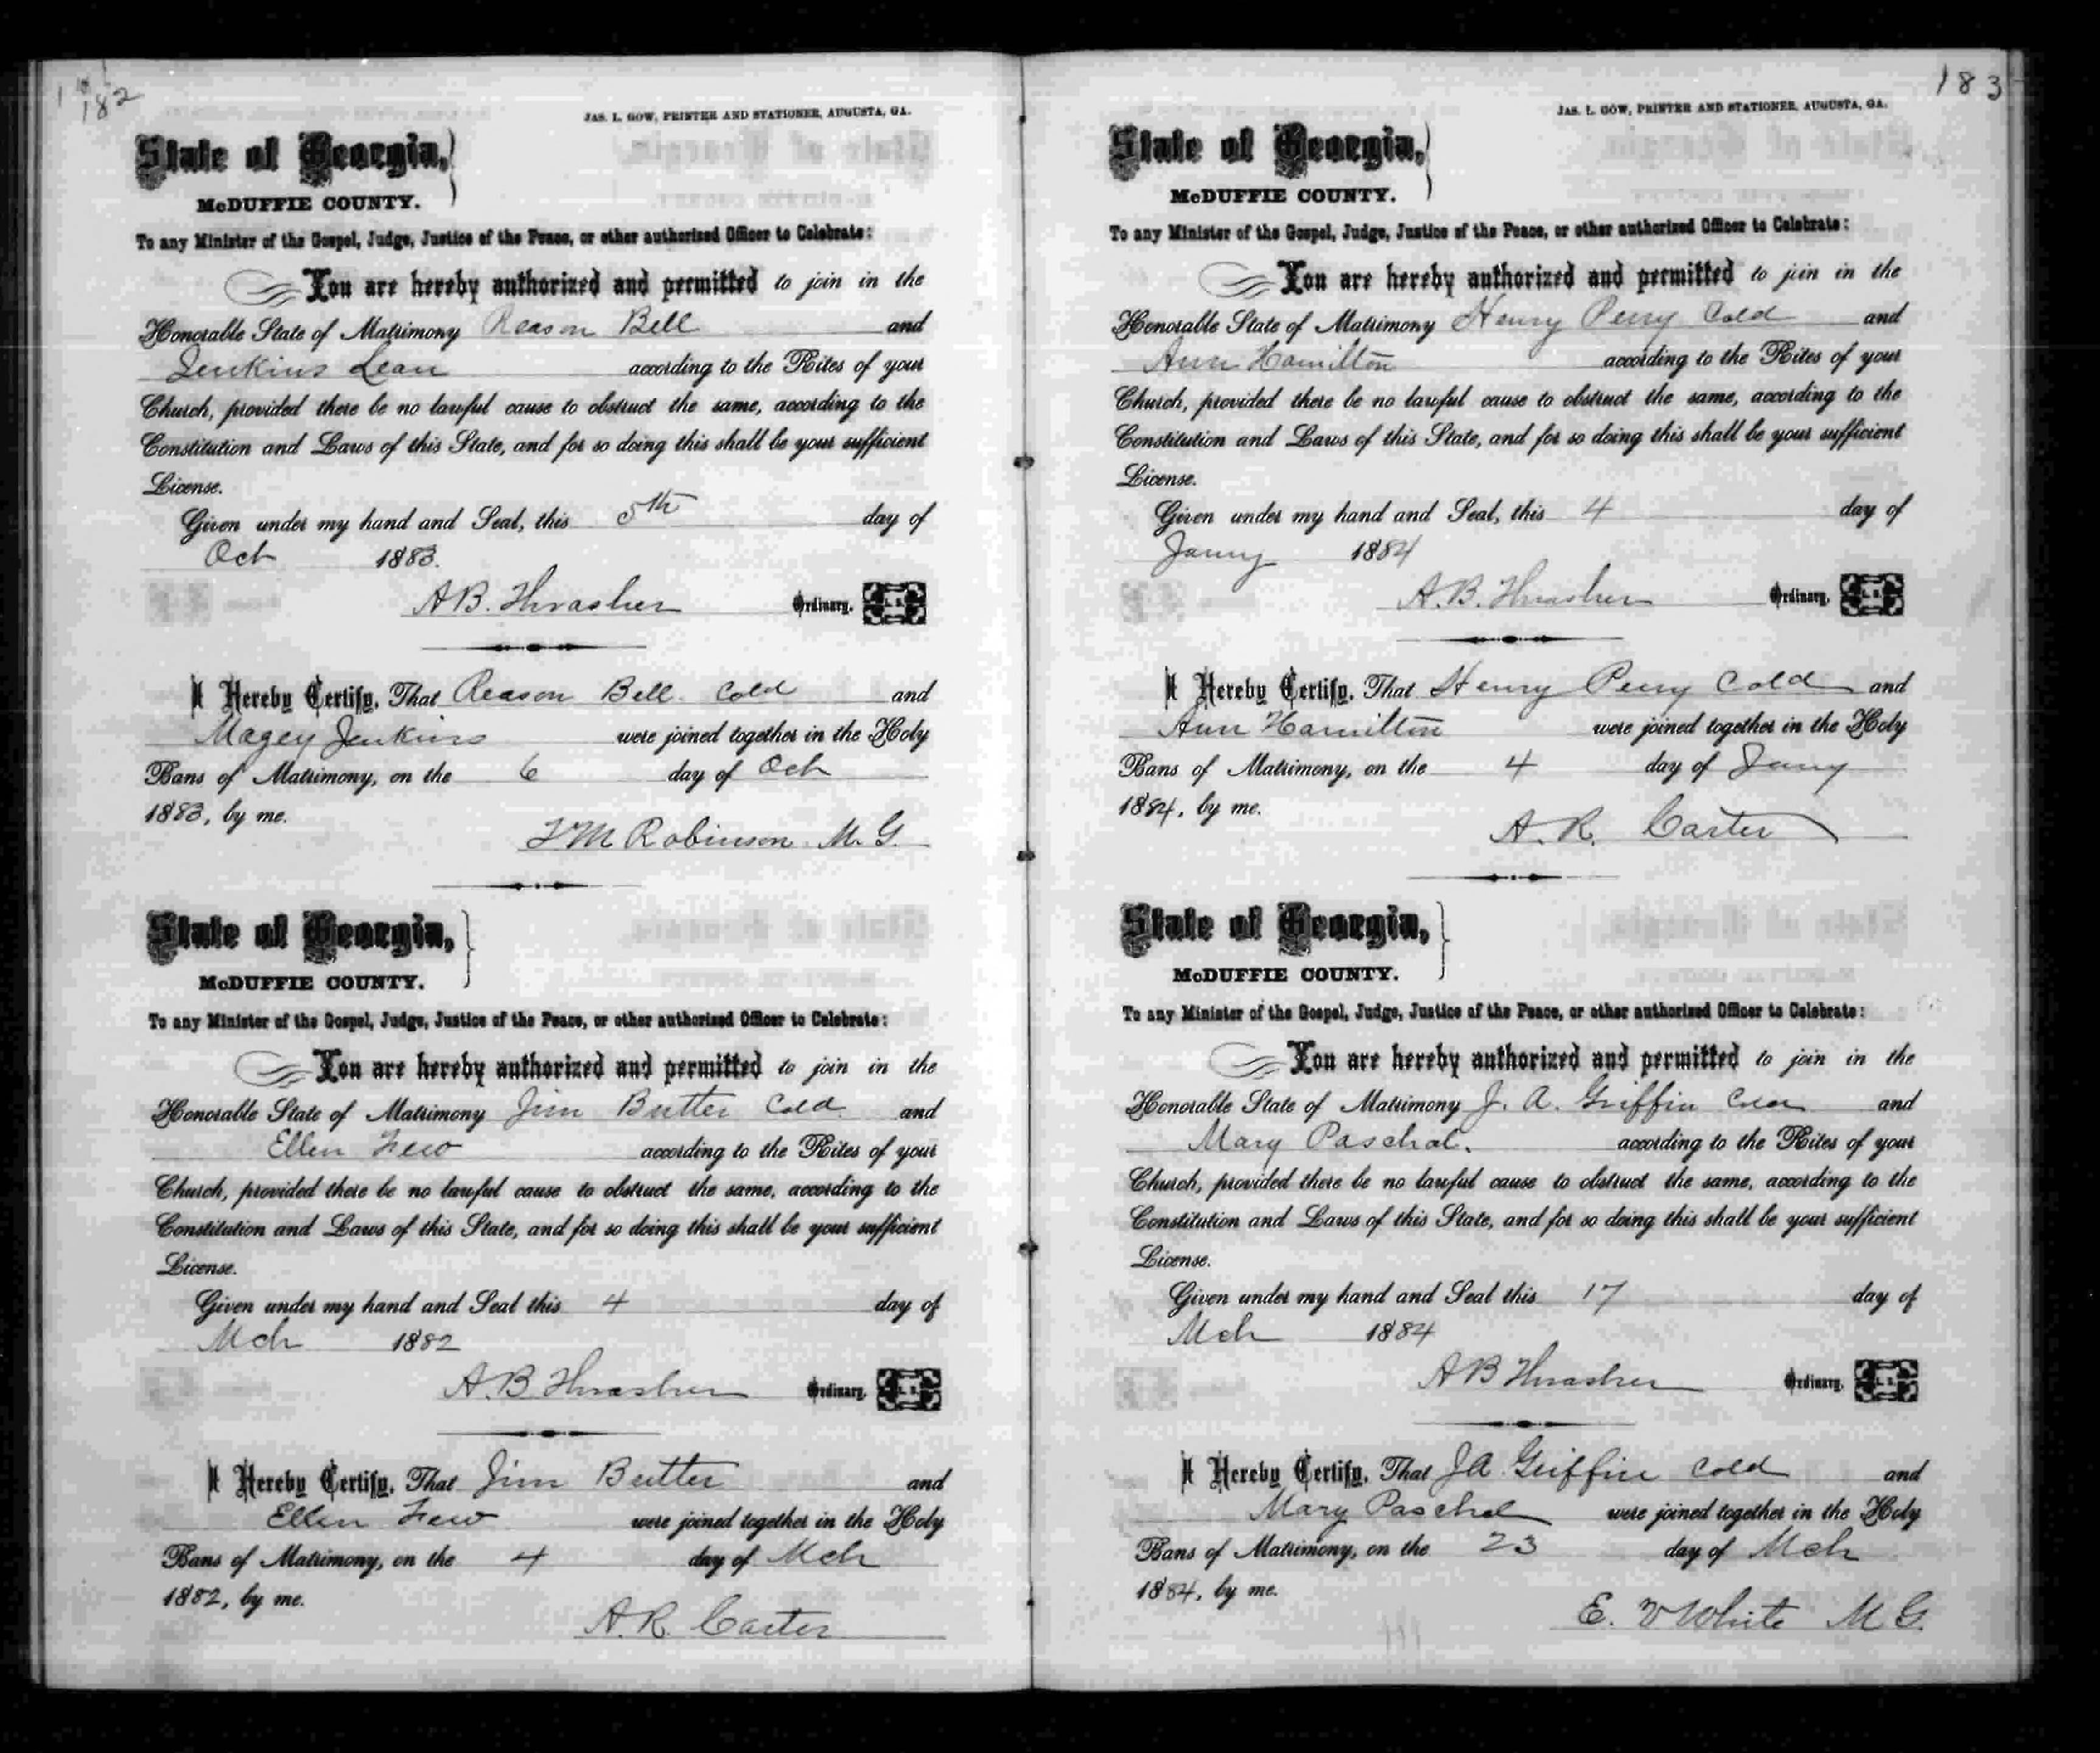 182
JAS. L. GOW, PRINTER AND STATIONER, AUGUSTA, GA.
State of Georgia,
McDUFFIE COUNTY.
To any Minister of the Gospel, Judge, Justice of the Peace, or other authorized Officer to Celebrate:
You are hereby authorized and permitted to join in the
Honorable State of Matrimony Reason Bell and
Jenkins Lean according to the Rites of your
Church, provided there be no lawful cause to obstruct the same, according to the
Constitution and Laws of this State, and for so doing this shall be your sufficient
License.
Given under my hand and Seal, this 5th day of
Oct 1883.
A B. Thrasher Ordinary. L. S.
I Hereby Certify, That Reason Bell Cold and
Magey Jenkins were joined together in the Holy
Bans of Matrimony, on the 6 day of Oct
1883, by me.
M Robinson M. G.
State of Georgia,
McDUFFIE COUNTY.
To any Minister of the Gospel, Judge, Justice of the Peace, or other authorized Officer to Celebrate:
You are hereby authorized and permitted to join in the
Honorable State of Matrimony Jim Butter Cold and
Ellen Few according to the Rites of your
Church, provided there be no lawful cause to obstruct the same, according to the
Constitution and Laws of this State, and for so doing this shall be your sufficient
License.
Given under my hand and Seal this 4 day of
Mch 1882
A. B. Thrasher Ordinary. L. S.
I Hereby Certify, That Jim Butter and
Ellen Few were joined together in the Holy
Bans of Matrimony, on the 4 day of Mch
1882, by me.
A. R. Carter
183
JAS. L. GOW, PRINTER AND STATIONER, AUGUSTA, GA.
State of Georgia,
McDUFFIE COUNTY.
To any Minister of the Gospel, Judge, Justice of the Peace, or other authorized Officer to Celebrate:
You are hereby authorized and permitted to join in the
Honorable State of Matrimony Henry Perry Cold and
Ann Hamilton according to the Rites of your
Church, provided there be no lawful cause to obstruct the same, according to the
Constitution and Laws of this State, and for so doing this shall be your sufficient
License.
Given under my hand and Seal, this 4 day of
Jany 1884
A. B. Thrasher Ordinary. L. S.
I Hereby Certify, That Henry Perry Cold and
Ann Hamilton were joined together in the Holy
Bans of Matrimony, on the 4 day of Jany
1884, by me.
A. R. Carter
State of Georgia,
McDUFFIE COUNTY.
To any Minister of the Gospel, Judge, Justice of the Peace, or other authorized Officer to Celebrate:
You are hereby authorized and permitted to join in the
Honorable State of Matrimony J. A. Griffin and
Mary Paschal. according to the Rites of your
Church, provided there be no lawful cause to obstruct the same, according to the
Constitution and Laws of this State, and for so doing this shall be your sufficient
License.
Given under my hand and Seal this 17 day of
Mch 1884
A B Thrasher Ordinary. L. S.
I Hereby Certify, That J A Griffin Cold and
Mary Paschal were joined together in the Holy
Bans of Matrimony, on the 23 day of Mch
1884, by me.
E. W White M G.